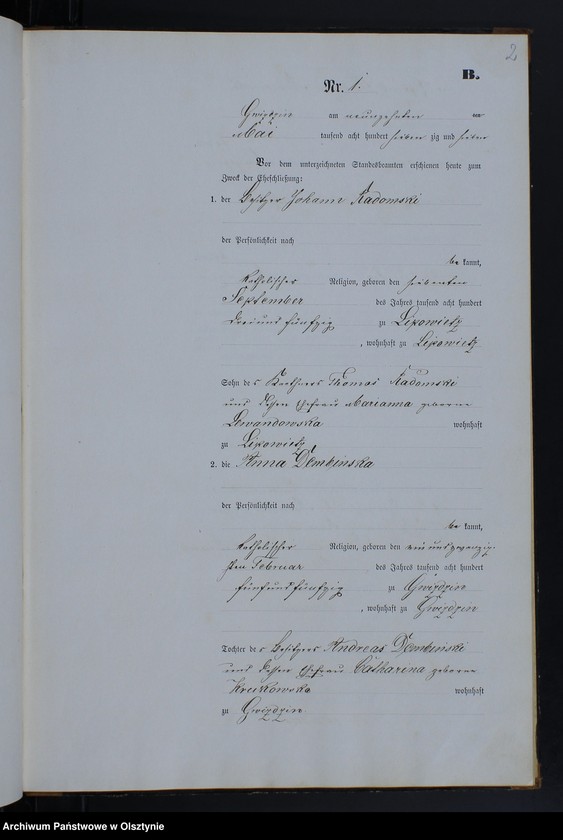 2
B.
Nr. 1.
Gwizdzin am neunzehnten
Mai tausend acht hundert sieben zig und sieben
Vor dem unterzeichneten Standesbeamten erschienen heute zum
Zweck der Eheschließung:
1. der Besitzer Johann Radomski
der Persönlichkeit nach
be kannt,
katholischer Religion, geboren den siebenten
September des Jahres tausend acht hundert
dreiundfünfzig zu Lipowietz
, wohnhaft zu Lipowietz
Sohn des Käthners Thomas Radomski
und dessen Ehefrau Marianna geborne
Lewandowska wohnhaft
zu Lipowietz
2. die Anna Dembinska
der Persönlichkeit nach
be kannt,
katholischer Religion, geboren den einundzwanzig-
sten Februar des Jahres tausend acht hundert
fünfundfünfzig zu Gwizdzin
, wohnhaft zu Gwizdzin
Tochter des Besitzers Andreas Dembinski
und dessen Ehefrau Catharina geborne
wohnhaft
zu Gwizdzin
Archiwum Państwowe w Olsztynie